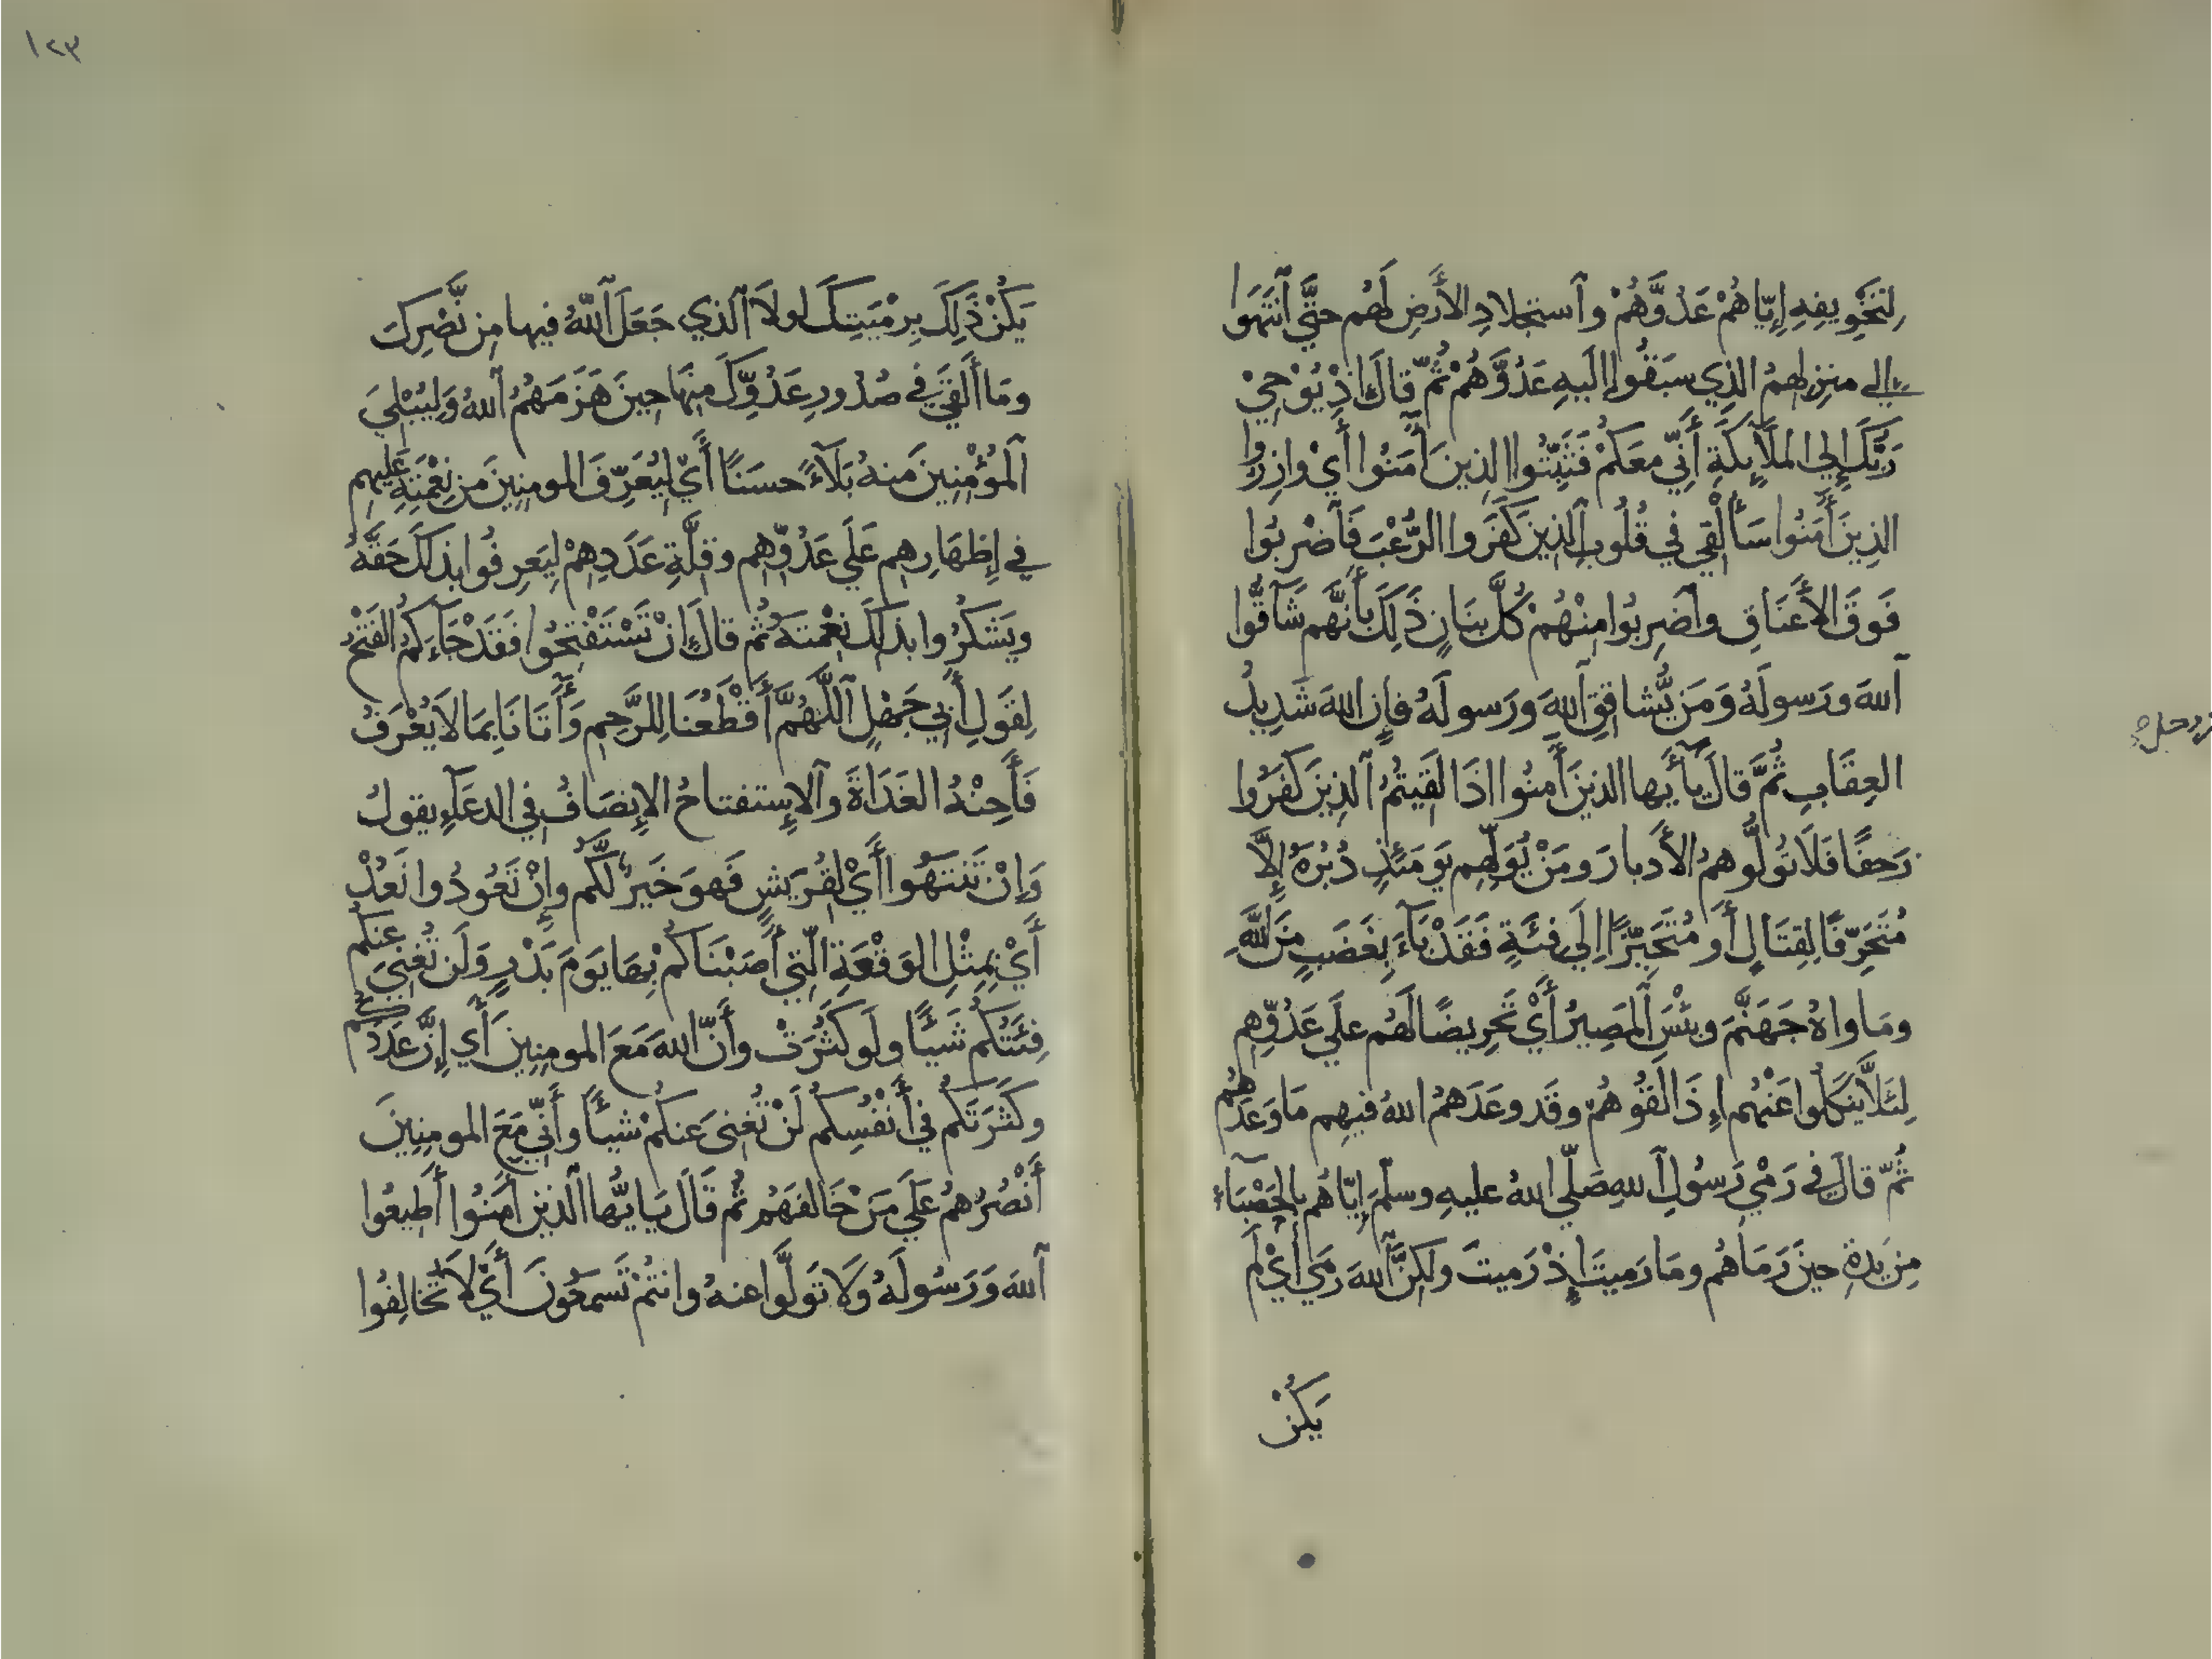 لِتَخْوِيفِهِ إِيّاهُمْ عَدُوَّهُمْ وآستجلادِ الأَرضِ لَهُم حتَّى آنتَهَوا
إلى منزِلهمُ الذِي سبَقُوا إليهِ عَدُوَّهُمْ ثُمّ قالَ إذْ يُوْحِيْ
رَبُّكَ إِلى الملَآئِكَةِ أَنِّي معَكُمْ فَثَبِّتُوا الذِينَ آمَنُوا أَيْ وازِرُوا
الذِينَ أَمَنُوا سَأُلْقِي في قُلُوبِ آلذِينَ كَفَرَوا الرُّعْبَ فَآضْرِبُوا
فَوقَ الأَعنَاقِ وآضرِبُوا مِنْهُمْ كُلَّ بنَانٍ ذَلِكَ بأَنهَّم شَآقُّوا
آللهَ ورَسولَهُ وَمَن يُّشاقِقِ آللهِ ورَسولَهُ فإِن اللهَ شَدِيدُ
العِقَابِ ثُمَّ قالَ يَآأَيها الذينَ أَمنُوا اذَا لَقَيتُمُ آلذِينَ كَفَرُوا
زَحفًا فَلَا تُوَلُّوهمُ الأَدبارَ ومَنْ يُوَلِّهِم يَومَئذٍ دُبُرَهُ إِلَّا
مُتَحَرِّفًا لِقِتَالٍ أَو مُتَحَيِّزًا إِلَى فِئَةٍ فَقَدْ بَآءَ بِغَضَبٍ مِنَ اللَّهِ
ومَاواهُ جَهَنَّمَ وبِئْسَ آلمَصِيرُ أَيْ تَحرِيضًا لَهُم علَى عَدُوِّهِم
لِئَلَّا يَنكلُوا عَنْهُم إِذَا لَقُوهُمْ وقَد وعَدَهمُ اللهُ فيهِم مَا وَعَدَهُمْ
ثُمّ قالَ فِي رَمْيِ رَسُولِ آللهِ صَلّى اللهُ عليهِ وسلّمَ إِيّاهُم بالحَصْبَآء
مِن يَدهِ حِينَ رَمَاهُم ومَا رَميتَ إِذْ رَميتَ ولكِنَّ آللهَ رَمَى أَيْ لَم
يَكُنْ
١٢٣
يَكُنْ ذَلِكَ بِرِمْيَتِكَ لولَا آلذي جَعَلَ آللّهُ فيها مِن نَّصْرِكَ
ومَا أَلْقَى في صُدُورِ عَدُوِّكَ مِنهَا حِينَ هَزَمَهُمُ آللهُ وَلِيُبْلِيَ
آلمُؤْمِنِينَ منهُ بَلَآءً حسَنًا أَيْ لِيُعَرِّفَ المومنِينَ مَن نِعْمَتِهِ عليهِم
في إِظهَارِهِم عَلَى عَدُوِّهِم وقِلَّةِ عَدَدِهِمْ لِيَعرِفُوا بذلكَ حَقَّهُ
ويَشكُرُوا بذلكَ نِعْمتَهُ ثُم قالَ إِنْ تَسْتَفْتِحُوا فَقَدْ جَآءَكمُ الفَتْحُ
لِقَولِ أَبي جَهْلٍ آللَّهُمَّ أَقْطَعُنَا لِلرَّحِمِ وَأَتَانَا بِمَا لاَ يُعْرَفُ
فَأَحِنْهُ الغَدَاةَ وآلاِستفتاحُ الاِنصَافُ في الدعَآءِ يقولُ
وَإِنْ تَنتَهُوا أَيْ لِقُرَيشٍ فَهوَ خَيرٌ لَّكُم وإِنْ تَعُودُوا نَعُدْ
أَيْ بِمِثْلِ الوَقْعَةِ الّتي أَصَبْنَاكُم بِهَا يَومَ بَدْرٍ وَلَن تُغنِيَ عنكُم
فِئَتُكُم شَيئًا ولَو كثُرَتْ وأَنّ اللهَ مَعَ المومِنِينَ أَي إِنَّ عَدَدكُم
وكَثرَتَكُم في أَنْفُسِكُم لَنْ تُغنِىَ عَنكمْ شيئًا وأَنِّي مَعَ المومِنِينَ
أَنْصُرُهمْ عَلَى مَنْ خَالفَهُم ثُم قَالَ يَايُّها آلذين أَمَنُوا أَطِيعُوا
آللهَ وَرَسُولَهُ وَلَا تَولَّوا عنهُ وانتُمْ تَسمَعُونَ أَيْ لاَ تُخالِفُوا